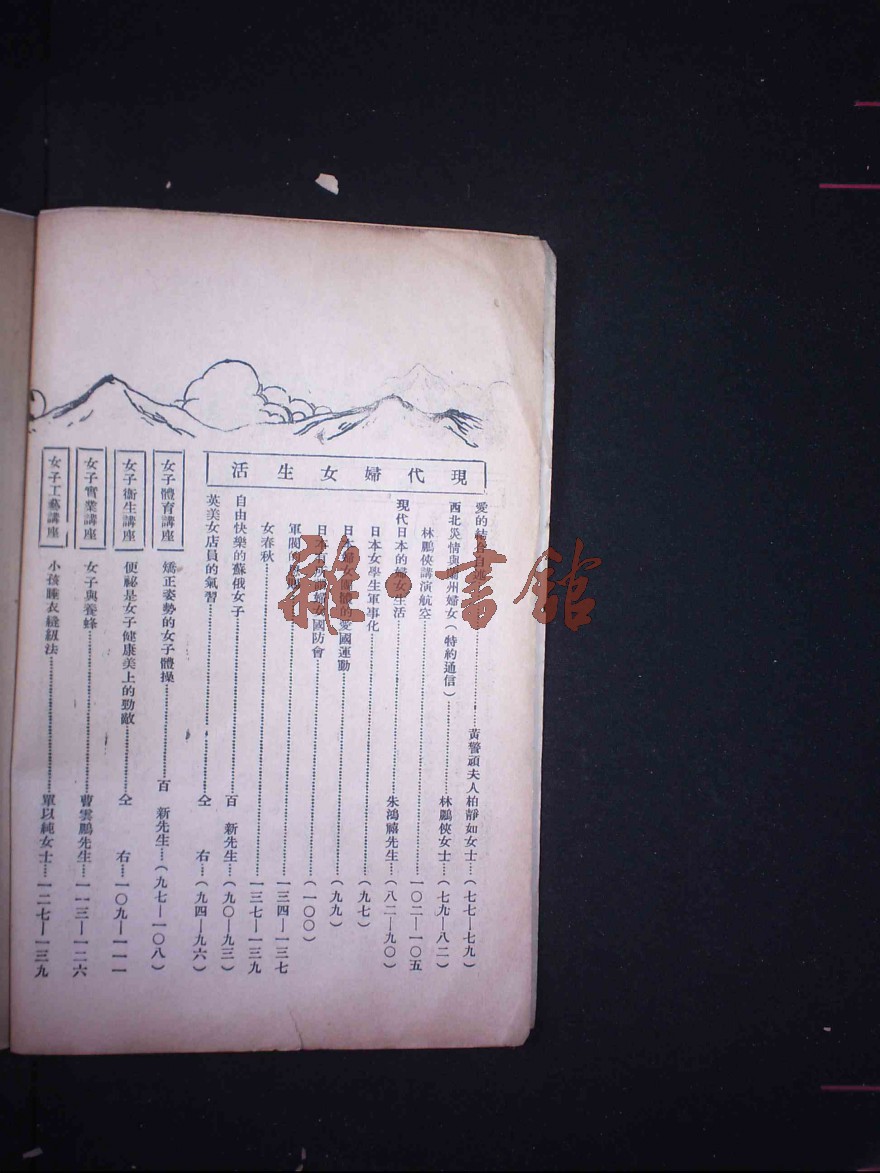 現代婦女生活
愛的結……黃警頑夫人柏靜如女士…(七七—七九)
西北災情與蘭州婦女(特約通信)……林鵬俠女士…(七九—八二)
林鵬俠講演航空……一〇二—一〇五
現代日本的婦女生活……朱鴻禧先生…(八二—九〇)
日本女學生軍事化……(九七)
日本婦女團體的愛國運動……(九九)
日本百婦女國防會……(一〇〇)
軍閥……一三四—一三七
女春秋……一三七—一三九
自由快樂的蘇俄女子……百新先生…(九〇—九三)
英美女店員的氣習……仝右…(九四—九六)
女子體育講座
矯正姿勢的女子體操……百新先生…(九七—一〇八)
女子衞生講座
便祕是女子健康美上的勁敵……仝右…一〇九—一一一
女子實業講座
女子與養蜂……曹雲鵬先生…一一三—一二六
女子工藝講座
小孩睡衣縫紉法……單以純女士…一二七—一三九
雜·書館